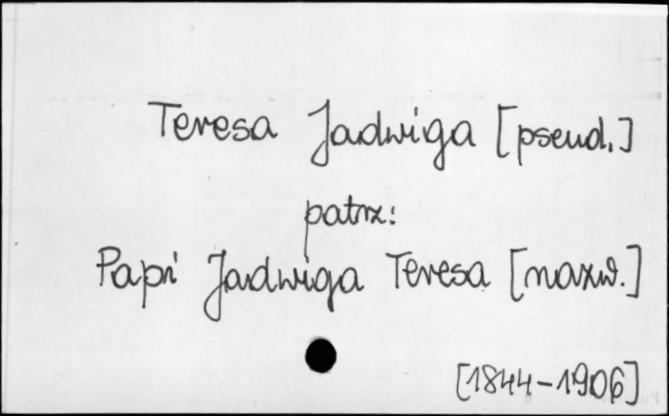 Teresa Jadwiga [pseud.]
patrz:
Papi Jadwiga Teresa [nazw.]
[1844-1906]